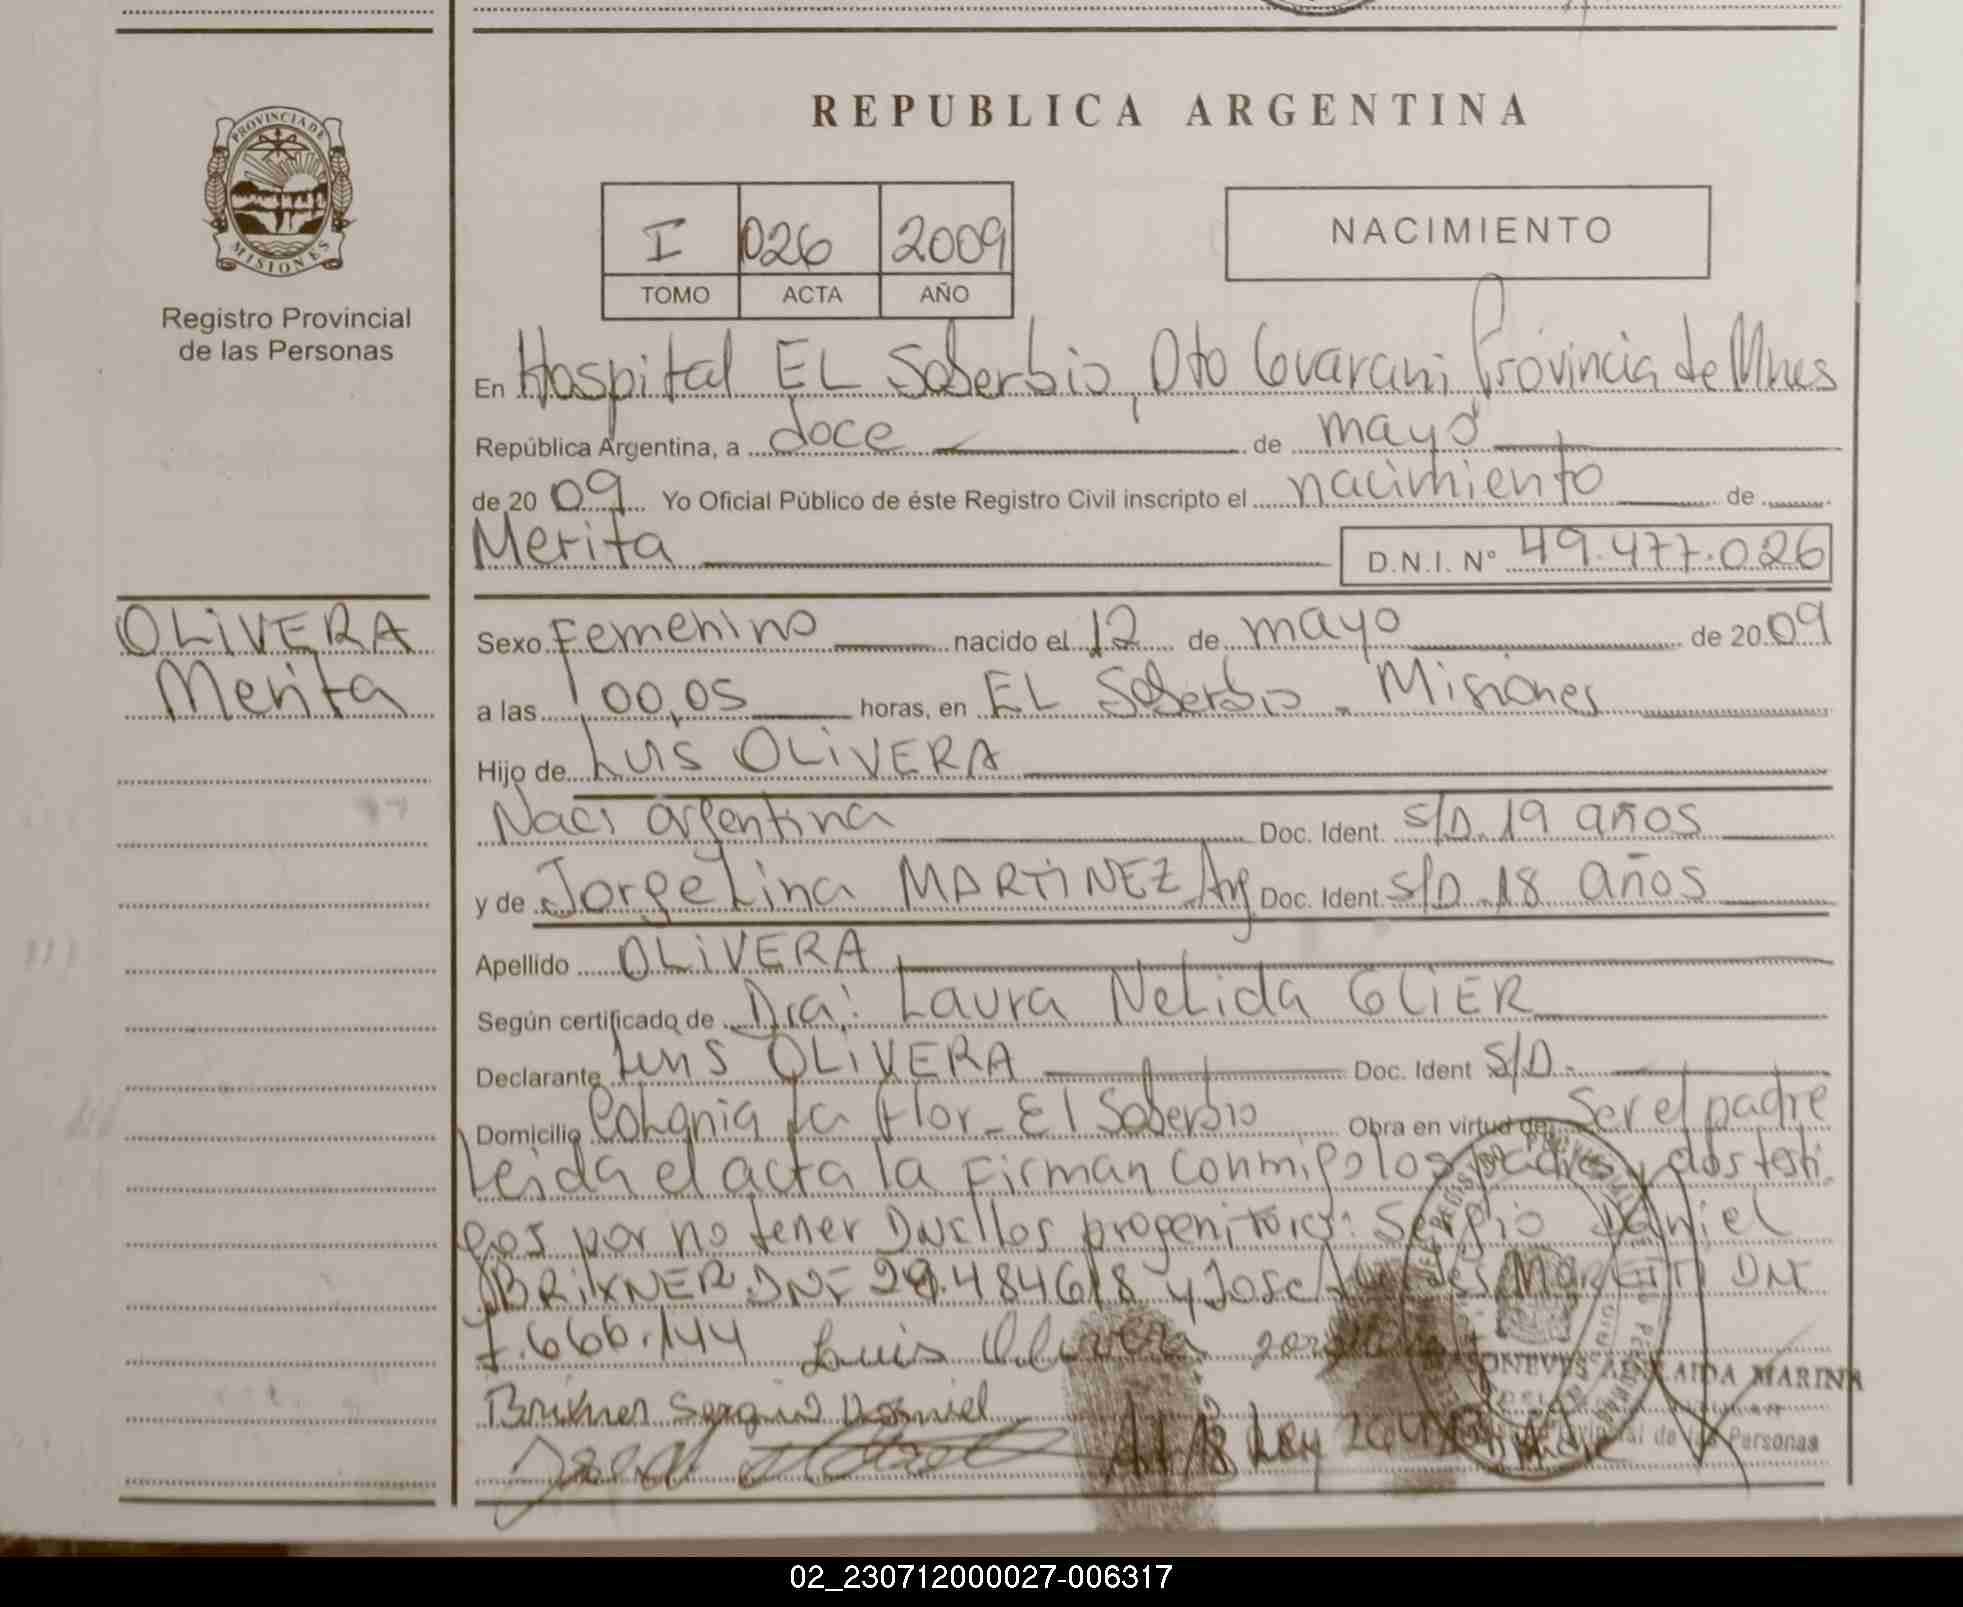 REPUBLICA ARGENTINA
PROVINCIA DE
MISIONES
Registro Provincial
de las Personas
I 026 2009
TOMO ACTA AÑO
NACIMIENTO
En Hospital EL Soberbio, Dto Guarani Provincia de Mnes
República Argentina, a doce de mayo
de 20 09 Yo Oficial Público de éste Registro Civil inscripto el nacimiento de
Merita D.N.I. N° 49.477.026
OLIVERA
Merita
Sexo Femenino nacido el 12 de mayo de 20 09
a las 00,05 horas, en EL Soberbio - Misiones
Hijo de Luis OLIVERA
Naci argentina Doc. Ident. S/D. 19 años
y de Jorgelina MARTINEZ Arg Doc. Ident. S/D. 18 años
Apellido OLIVERA
Según certificado de Dra: Laura Nelida GLIER
Declarante Luis OLIVERA Doc. Ident S/D.
Domicilio Colonia La Flor - El Soberbio Obra en virtud de Ser el padre
Leida el acta la firman conmigo los padres y dos testi
gos por no tener DNI los progenitores: Sergio Daniel
BRIXNER DNI 29.484618 y Jose DNI
7.666.144 Luis Olivera
Brixner Sergio Daniel
AIDA MARINA
Personas
02_230712000027-006317